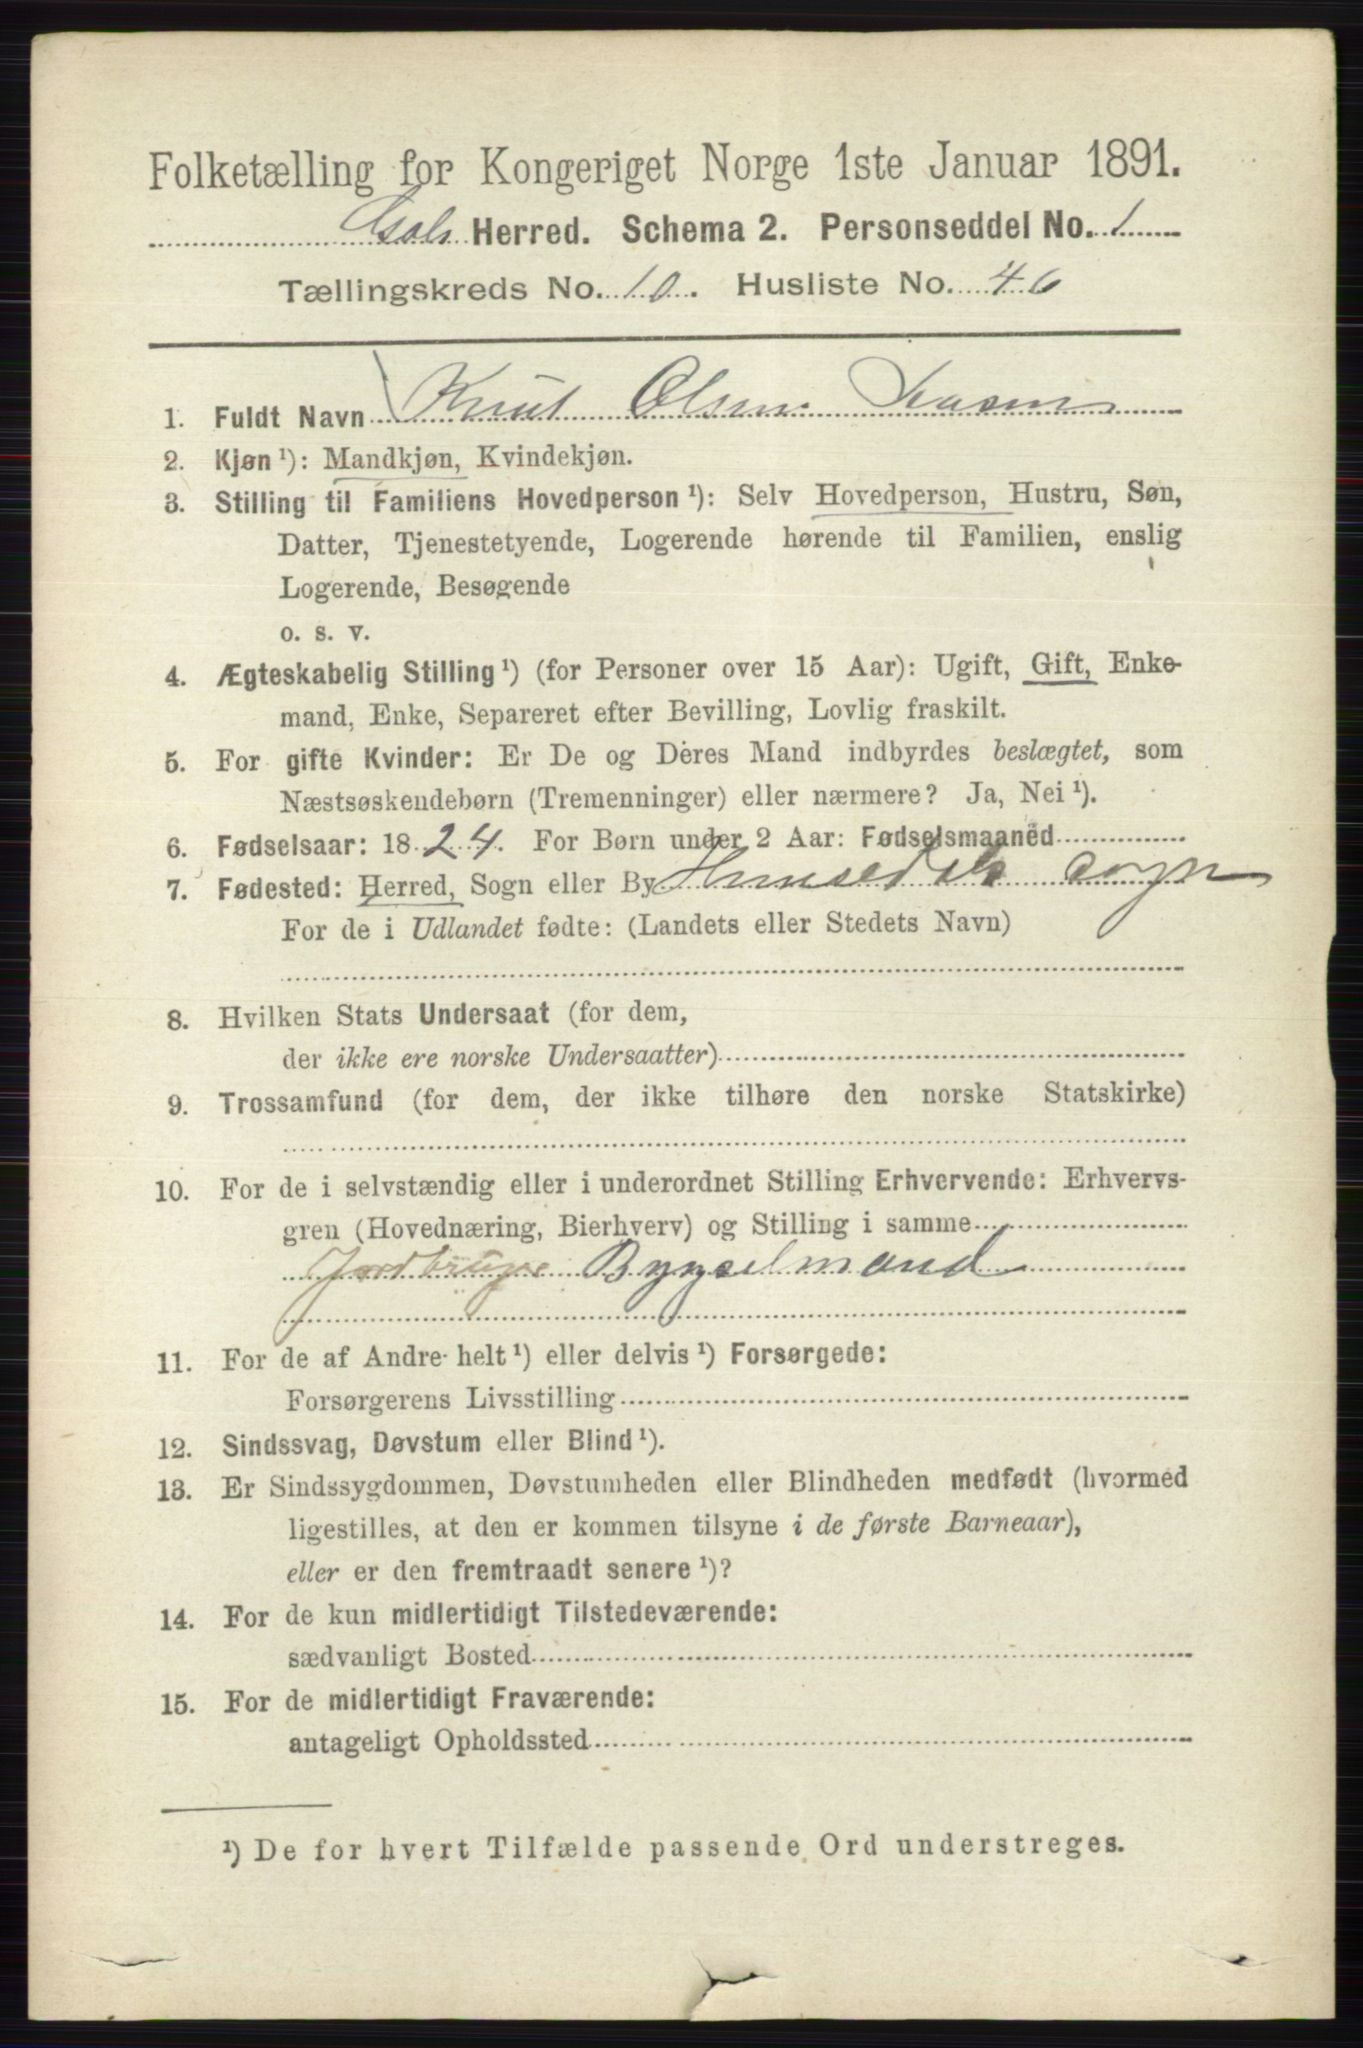 Folketælling for Kongeriget Norge 1ste Januar 1891.
Gols Herred. Schema 2. Personseddel No. 1
Tællingskreds No. 10. Husliste No. 46
1. Fuldt Navn Knut Olsen
2. Kjøn ¹): Mandkjøn, Kvindekjøn.
3. Stilling til Familiens Hovedperson ¹): Selv Hovedperson, Hustru, Søn,
Datter, Tjenestetyende, Logerende hørende til Familien, enslig
Logerende, Besøgende
o. s. v.
4. Ægteskabelig Stilling ¹) (for Personer over 15 Aar): Ugift, Gift, Enke-
mand, Enke, Separeret efter Bevilling, Lovlig fraskilt.
5. For gifte Kvinder: Er De og Deres Mand indbyrdes beslægtet, som
Næstsøskendebørn (Tremenninger) eller nærmere? Ja, Nei ¹).
6. Fødselsaar: 1824. For Børn under 2 Aar: Fødselsmaaned
7. Fødested: Herred, Sogn eller By Hemsedals sogn
For de i Udlandet fødte: (Landets eller Stedets Navn)
8. Hvilken Stats Undersaat (for dem,
der ikke ere norske Undersaatter)
9. Trossamfund (for dem, der ikke tilhøre den norske Statskirke)
10. For de i selvstændig eller i underordnet Stilling Erhvervende: Erhvervs-
gren (Hovednæring, Bierhverv) og Stilling i samme
Jordbruge Bygselmand
11. For de af Andre helt ¹) eller delvis ¹) Forsørgede:
Forsørgerens Livsstilling
12. Sindssvag, Døvstum eller Blind ¹).
13. Er Sindssygdommen, Døvstumheden eller Blindheden medfødt (hvormed
ligestilles, at den er kommen tilsyne i de første Barneaar),
eller er den fremtraadt senere ¹)?
14. For de kun midlertidigt Tilstedeværende:
sædvanligt Bosted
15. For de midlertidigt Fraværende:
antageligt Opholdssted
¹) De for hvert Tilfælde passende Ord understreges.